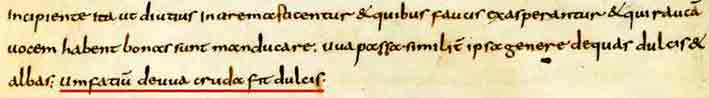 Incipiente Ita ut diutius In ore masticentur & quibus faucis exasperantur & qui raucā
uocem habent bonas sunt manducare. uua passa similit̄ ipsa genere de quas dulcis &
albas; umfatiū de uua cruda fit dulcis.